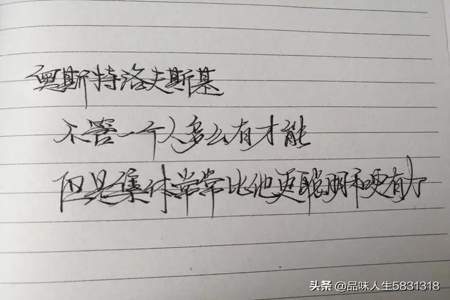 奥斯特洛夫斯基
不管一个人多么有才能
但是集体常常比他更聪明和更有力
头条 @品味人生5831318